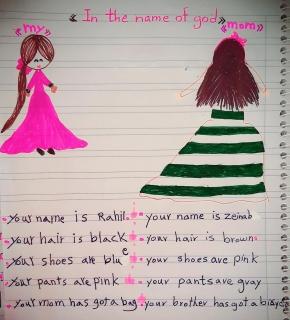 « In the name of god»
«my»
«mom»
your name is Rahil.
your name is zeinab
your hair is black
your hair is brown.
your shoes are blue
your shoes are pink
your pants are pink
your pants are gray
your mom has got a bag.
your brother has got a bicycle